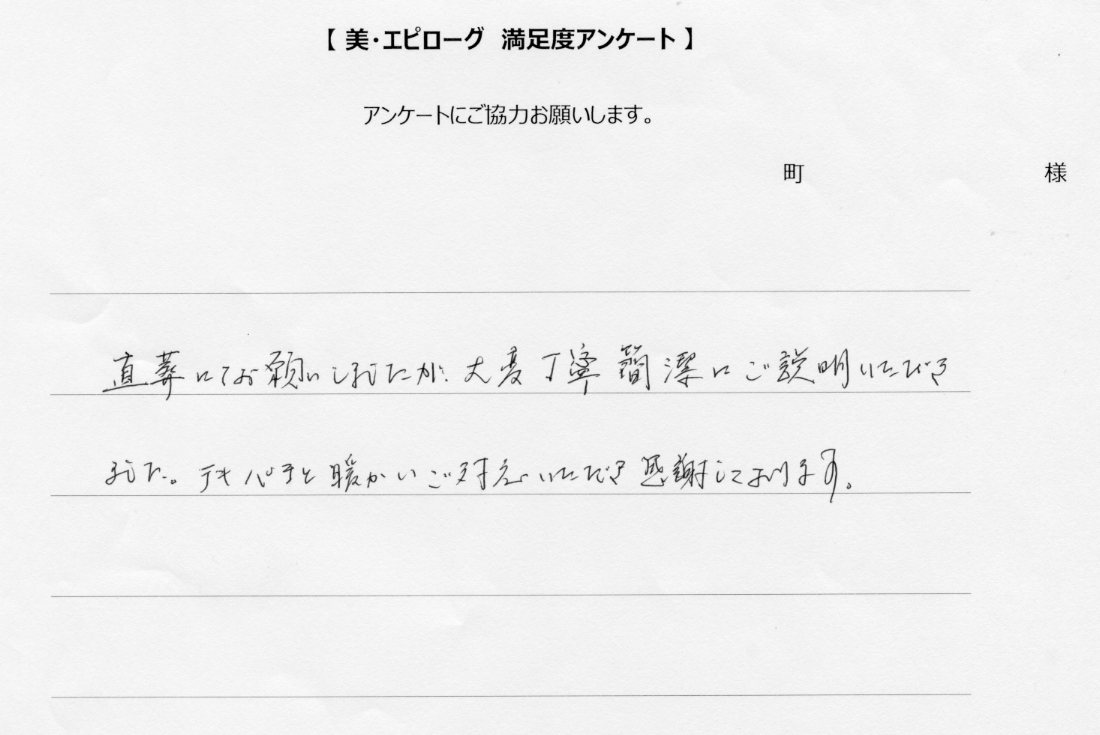 【 美・エピローグ　満足度アンケート 】
アンケートにご協力お願いします。
町　様
直葬にてお願いしましたが、大変丁寧簡潔にご説明いただき
ました。テキパキと暖かいご対応いただき感謝しております。